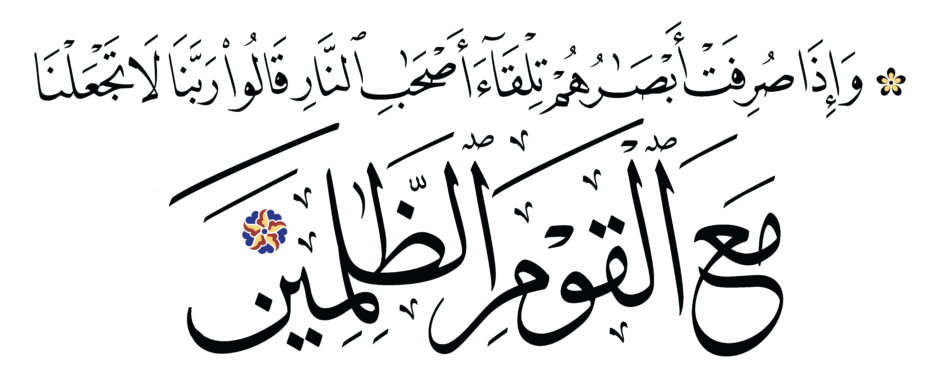 وَإِذَا صُرِفَتْ أَبْصَـٰرُهُمْ تِلْقَآءَ أَصْحَـٰبِ ٱلنَّارِ قَالُوا۟ رَبَّنَا لَا تَجْعَلْنَا
مَعَ ٱلْقَوْمِ ٱلظَّـٰلِمِينَ